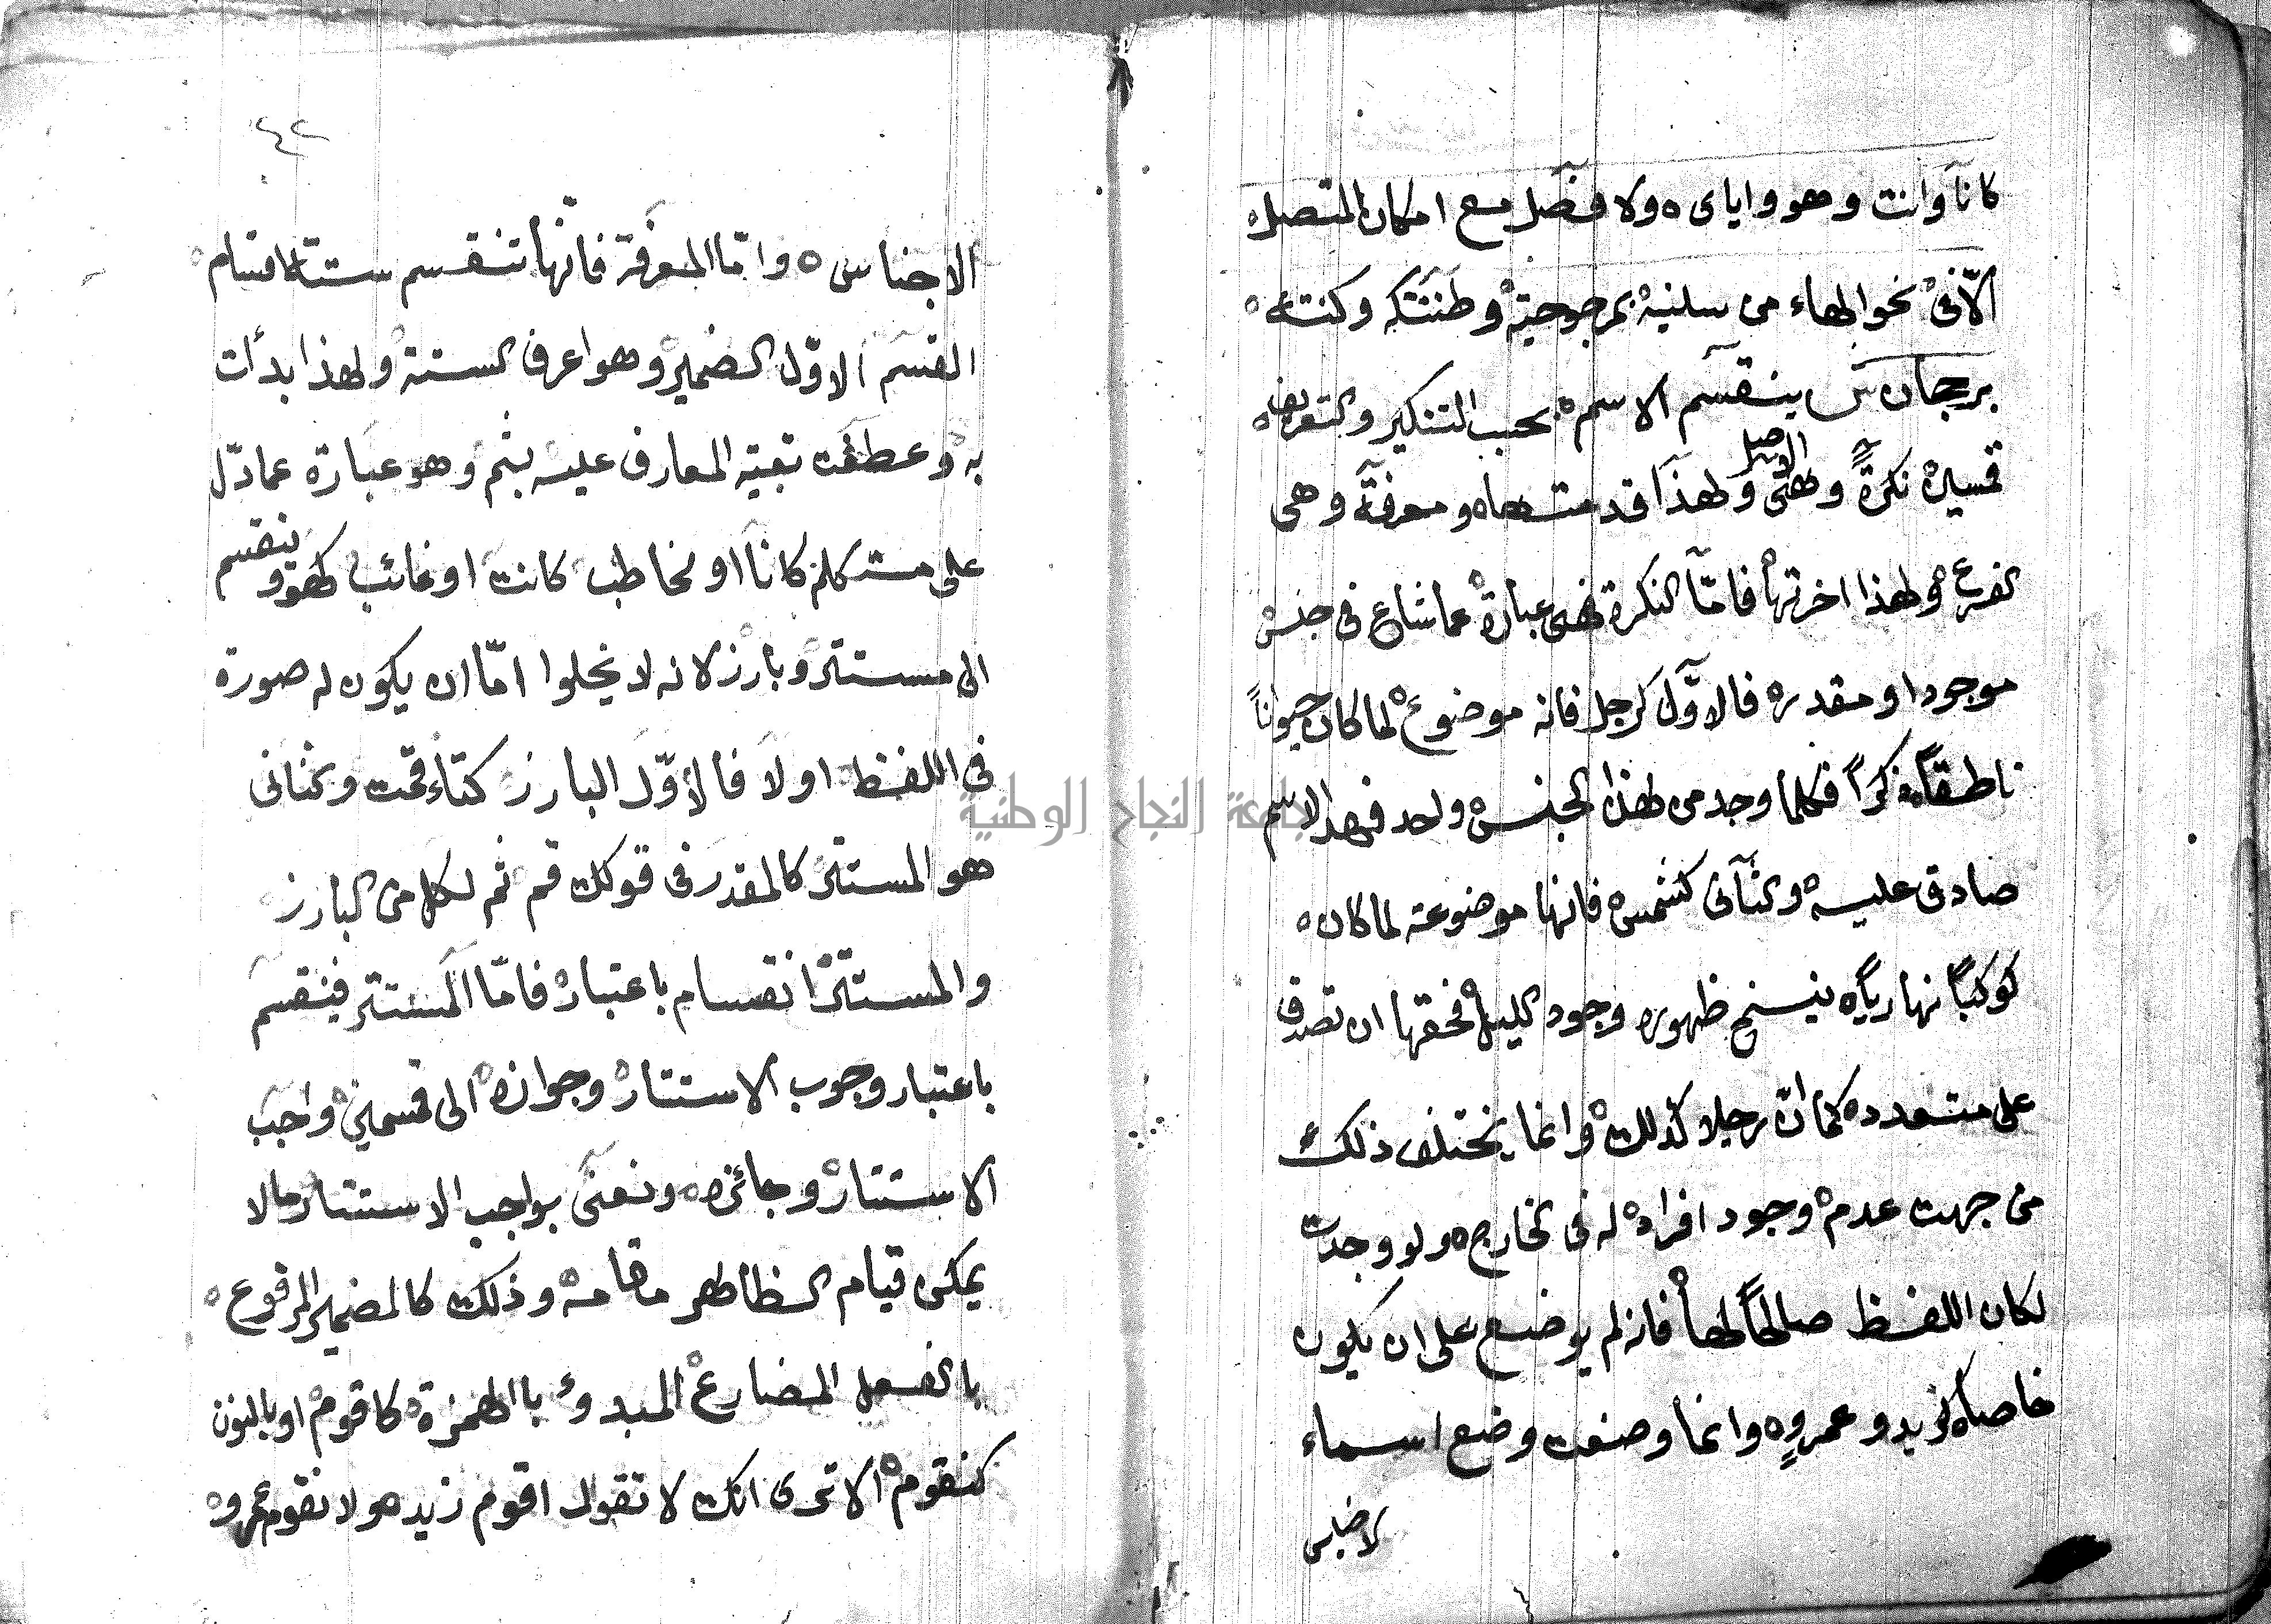 كانا وانت وهو واياى ه ولا فصل مع امكان المتصل
الّا فى نحو الهاء من سلنيه بمرجوحية وظننتكه وكنته
برجحان ش ينقسم الاسم بحسب التنكير والتعريف
قسمين نكرة وهى الاصل ولهذا قدمتها ه ومعرفة وهى
الفرع ولهذا اخرتها فامّا النكرة فهى عبارة عما شاع فى جنس
موجود او مقدر ه فالاوّل كرجل فانه موضوع لما كان حيواناً
ناطقاً ذكراً فكلما وجد من هذا الجنس واحد فهذا الاسم
صادق عليه والثانى كشمس فانها موضوعة لما كان
كوكباً نهارياً ه ينسخ ظهوره وجود الليل فحقها ان تصدق
على متعدد ه كما انّ رجلا كذلك وانما يختلف ذلك
من جهت عدم وجود افراد له فى الخارج ه ولو وجدت
لكان اللفظ صالحاً لها فانه لم يوضع على ان يكون
خاصا ه كزيد وعمرو ه وانما وضعت وضع اسماء
الاجناس
جامعة النجاح الوطنية
٤٢
الاجناس ه وامّا المعرفة فانّها تنقسم ستة اقسام
القسم الاوّل الضمير وهو اعرف الستة ولهذا بدأت
به وعطفت بقية المعارف عليه بثم وهو عبارة عما دلّ
على متكلم كانا او مخاطب كانت او غائب كهو وينقسم
الى مستتر وبارز لانه لا يخلوا امّا ان يكون له صورة
فى اللفظ اولا فالأوّل البارز كتاء قمت والثانى
هو المستتر كالمقدر فى قولك قم ثم لكل من البارز
والمستتر انقسام باعتبار فامّا المستتر فينقسم
باعتبار وجوب الاستتار وجوازه الى قسمين واجب
الاستتار وجائزه ونعنى بواجب الاستتار ما لا
يمكن قيام الظاهر مقامه وذلك كالضمير المرفوع
بالفعل المضارع المبدوء بالهمزة كاقوم او بالنون
كنقوم الا ترى انك لا تقول اقوم زيد ه ولا نقوم عمرو ه